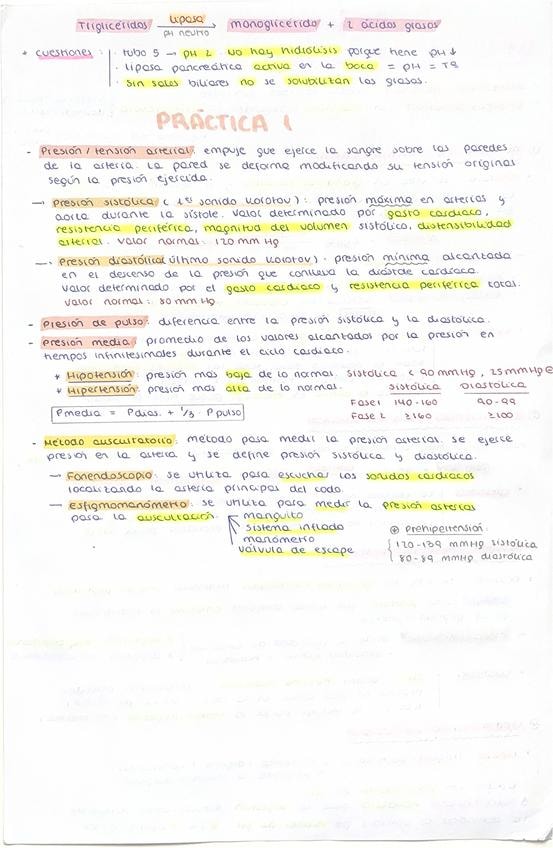 Triglicéridos lipasa → pH neutro monoglicérido + 2 ácidos grasos
+ cuestiones: · tubo 5 → pH 2 no hay hidrólisis porque tiene pH ↓
· lipasa pancreática activa en la boca = pH = Tª
· Sin sales biliares no se solubilizan las grasas.
PRÁCTICA 1
- Presión / tensión arterial: empuje que ejerce la sangre sobre las paredes
de la arteria. La pared se deforma modificando su tensión original
según la presión ejercida.
→ Presión sistólica (1er sonido Korotov): presión máxima en arterias y
aorta durante la sístole. Valor determinado por gasto cardiaco,
resistencia periférica, magnitud del volumen sistólico, distensibilidad
arterial. Valor normal: 120 mm Hg
→ Presión diastólica (último sonido Korotov): presión mínima alcanzada
en el descenso de la presión que conlleva la diástole cardiaca.
Valor determinado por el gasto cardiaco y resistencia periférica total.
Valor normal: 80 mm Hg
- Presión de pulso: diferencia entre la presión sistólica y la diastólica.
- Presión media: promedio de los valores alcanzados por la presión en
tiempos infinitesimales durante el ciclo cardiaco.
* Hipotensión: presión más baja de lo normal. Sistólica < 90 mmHg, 25 mmHg
* Hipertensión: presión más alta de lo normal.
Sistólica Diastólica
Fase 1 140-160 90-99
Fase 2 ≥160 ≥100
Pmedia = Pdias. + 1/3 · P pulso
- Método auscultatorio: método para medir la presión arterial. Se ejerce
presión en la arteria y se define presión sistólica y diastólica.
→ Fonendoscopio: se utiliza para escuchar los sonidos cardiacos
localizando la arteria principal del codo.
→ Esfigmomanómetro: se utiliza para medir la presión arterial
para la auscultación.
manguito
sistema inflado
manómetro
válvula de escape
⊕ Prehipertensión:
120-139 mmHg sistólica
80-89 mmHg diastólica